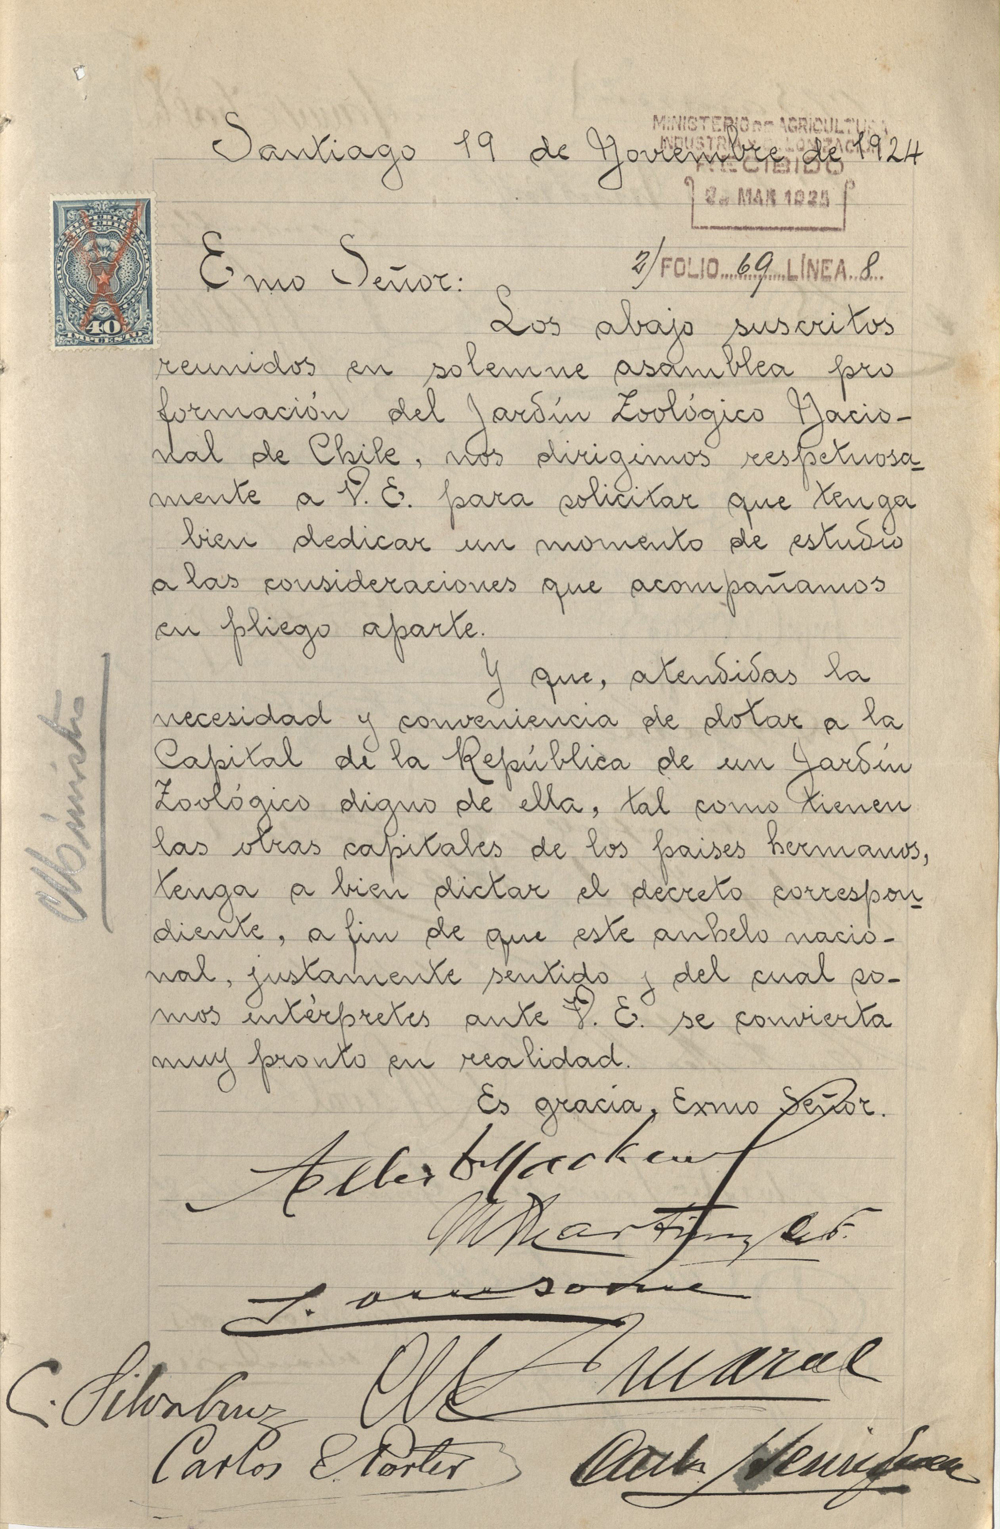 Santiago 19 de Noviembre de 1924
MINISTERIO DE AGRICULTURA
INDUSTRIA Y COLONIZACION
RECIBIDO
MAR 1925
2/ FOLIO 69 LÍNEA 8
40
Exmo Señor:
Los abajo suscritos
reunidos en solemne asamblea pro
formación del Jardín Zoológico Nacio-
nal de Chile, nos dirigimos respetuosa-
mente a V. E. para solicitar que tenga
bien dedicar un momento de estudio
a las consideraciones que acompañamos
en pliego aparte.
Y que, atendidas la
necesidad y conveniencia de dotar a la
Capital de la República de un Jardín
Zoológico digno de ella, tal como tienen
las otras capitales de los paises hermanos,
tenga a bien dictar el decreto correspon-
diente, a fin de que este anhelo nacio-
nal, justamente sentido y del cual so-
mos intérpretes ante V. E. se convierta
muy pronto en realidad.
Es gracia, Exmo Señor.
C. Silva Cruz
Carlos E. Porter